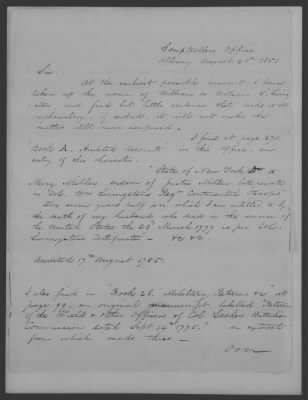 Comptrollers Office
Albany August 25th 1851
Sir.
At the earliest possible moment, I have
taken up the name of William or William S.
and find but little evidence that looks
explanatory, if indeed, it will not make the
matter still more confused.
I find at page 275.
"Book A. Audited accounts" in this office, an
entry of this character.
"State of New York Dr to
Mary Miller widow of Justus Miller late private
in Col. Wm Livingstons Regt Continental troops
For seven years half pay which I am entitled to by
the death of my husband who died in the service of
the United States the 28 March 1777 as per Col.
Livingstons Certificate" — &c &c.
Audited 17th August 1785.
I also find in "Book 28. Military Returns &c" at
page 99. an original manuscript labelled "Return
of the Field & other Officers of Col Lashers Battalion
Commissions dated Sept 14th 1775." an extract
from which reads thus —
over